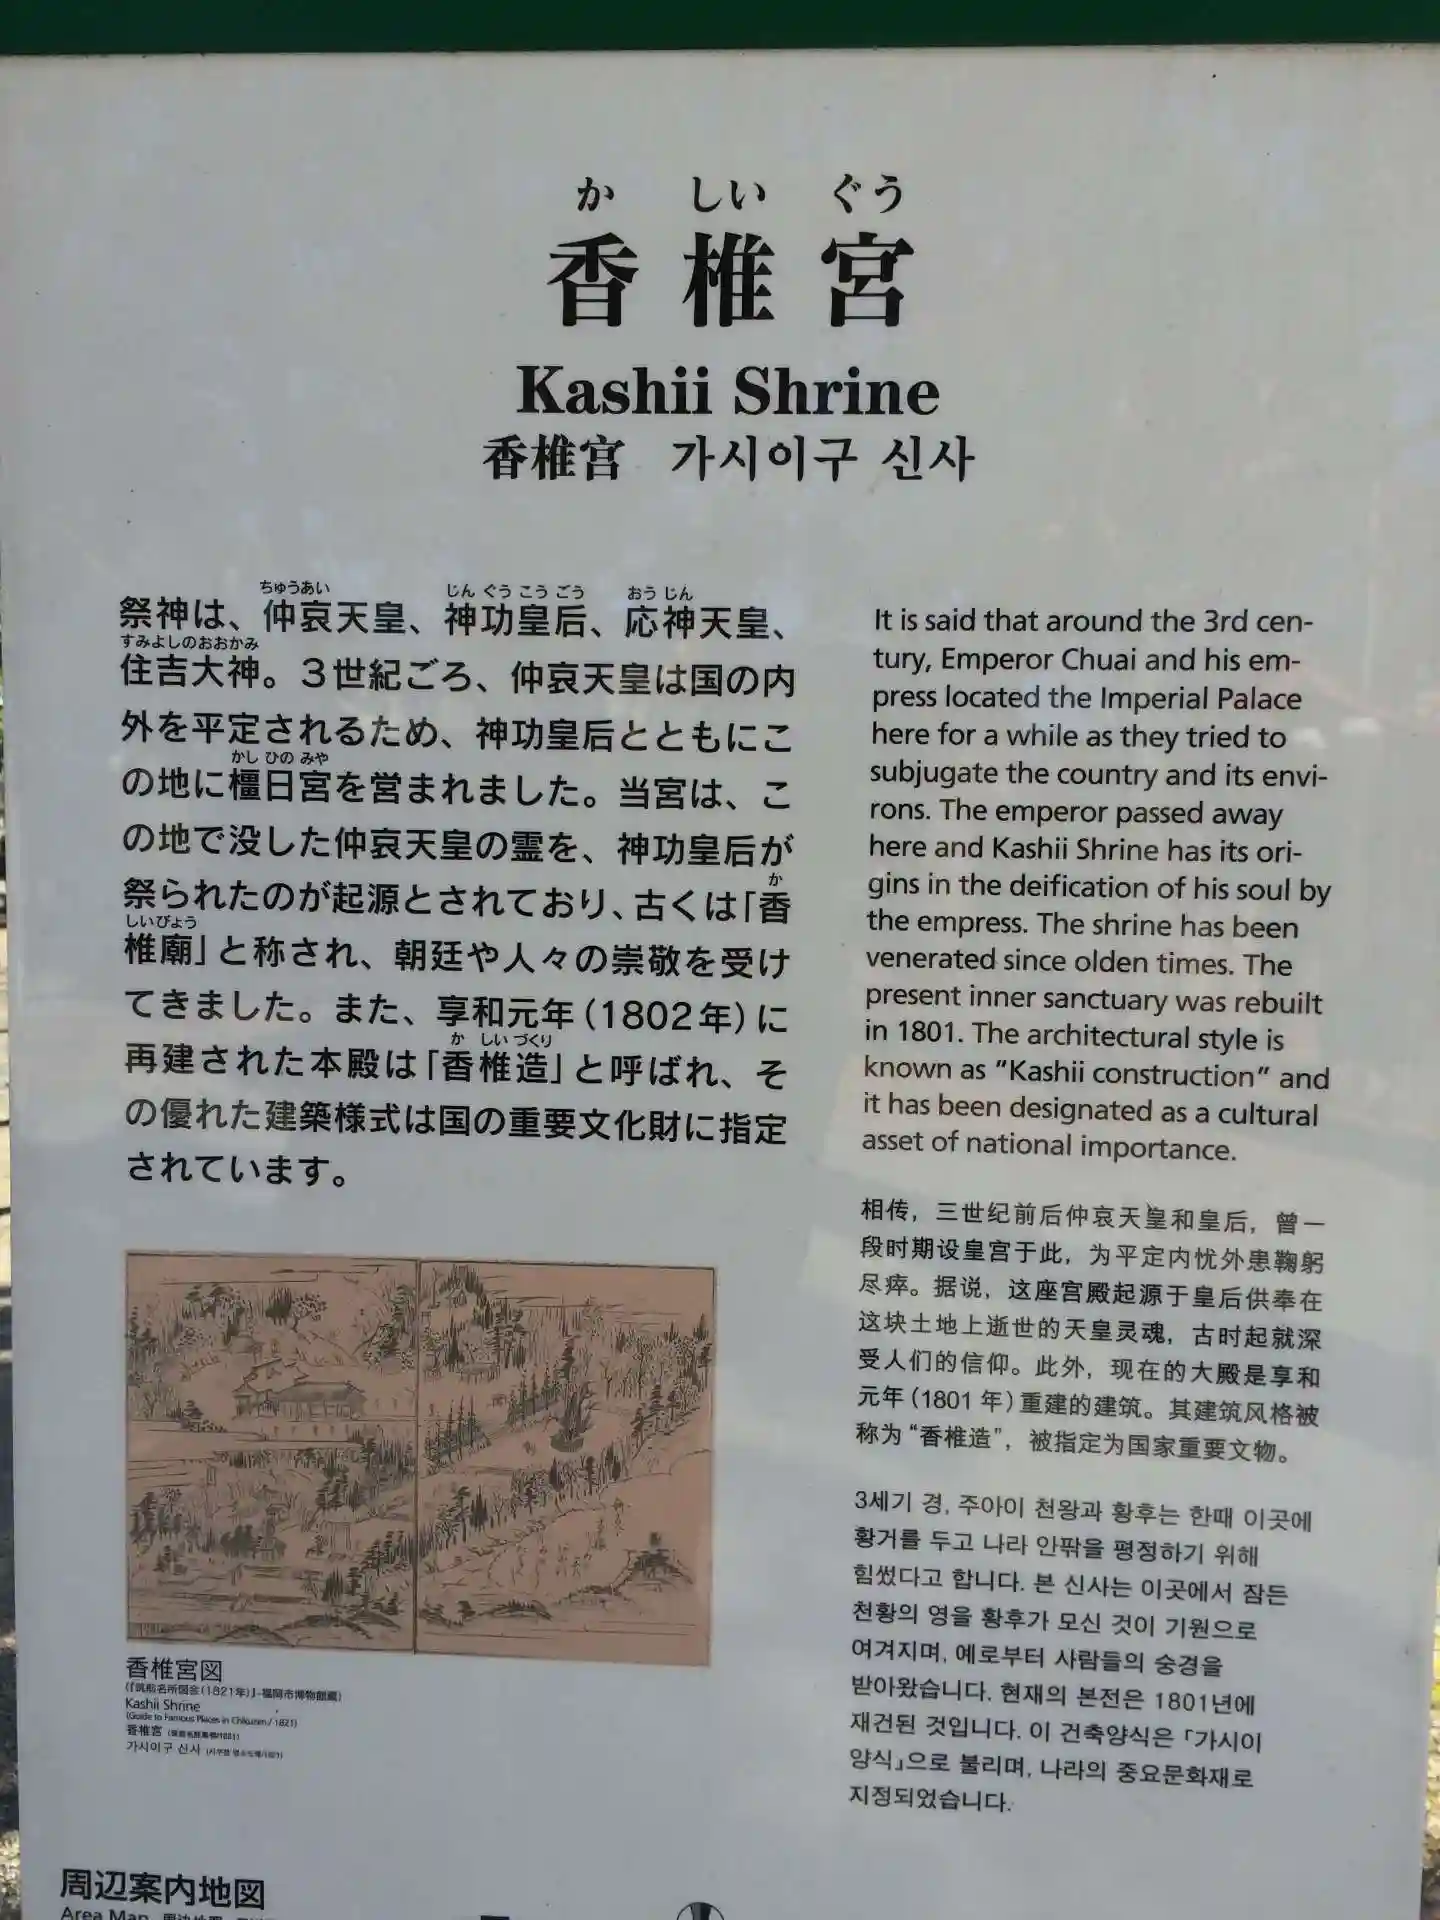 か しい ぐう
香椎宮
Kashii Shrine
香椎宫 가시이구 신사
ちゅうあい じん ぐう こう ごう おう じん
祭神は、仲哀天皇、神功皇后、応神天皇、
すみよしのおおかみ
住吉大神。3世紀ごろ、仲哀天皇は国の内
外を平定されるため、神功皇后とともにこ
かし ひの みや
の地に橿日宮を営まれました。当宮は、こ
の地で没した仲哀天皇の霊を、神功皇后が
か
祭られたのが起源とされており、古くは「香
しいびょう
椎廟」と称され、朝廷や人々の崇敬を受け
てきました。また、享和元年(1802年)に
か しい づくり
再建された本殿は「香椎造」と呼ばれ、そ
の優れた建築様式は国の重要文化財に指定
されています。
It is said that around the 3rd cen-
tury, Emperor Chuai and his em-
press located the Imperial Palace
here for a while as they tried to
subjugate the country and its envi-
rons. The emperor passed away
here and Kashii Shrine has its ori-
gins in the deification of his soul by
the empress. The shrine has been
venerated since olden times. The
present inner sanctuary was rebuilt
in 1801. The architectural style is
known as "Kashii construction" and
it has been designated as a cultural
asset of national importance.
相传，三世纪前后仲哀天皇和皇后，曾一
段时期设皇宫于此，为平定内忧外患鞠躬
尽瘁。据说，这座宫殿起源于皇后供奉在
这块土地上逝世的天皇灵魂，古时起就深
受人们的信仰。此外，现在的大殿是享和
元年(1801年)重建的建筑。其建筑风格被
称为“香椎造”，被指定为国家重要文物。
3세기 경, 주아이 천왕과 황후는 한때 이곳에
황거를 두고 나라 안팎을 평정하기 위해
힘썼다고 합니다. 본 신사는 이곳에서 잠든
천황의 영을 황후가 모신 것이 기원으로
여겨지며, 예로부터 사람들의 숭경을
받아왔습니다. 현재의 본전은 1801년에
재건된 것입니다. 이 건축양식은 「가시이
양식」으로 불리며, 나라의 중요문화재로
지정되었습니다.
香椎宮図
(『筑前名所図会(1821年)』-福岡市博物館蔵)
Kashii Shrine
(Guide to Famous Places in Chikuzen / 1821)
香椎宫
가시이구 신사
周辺案内地図
Area Map